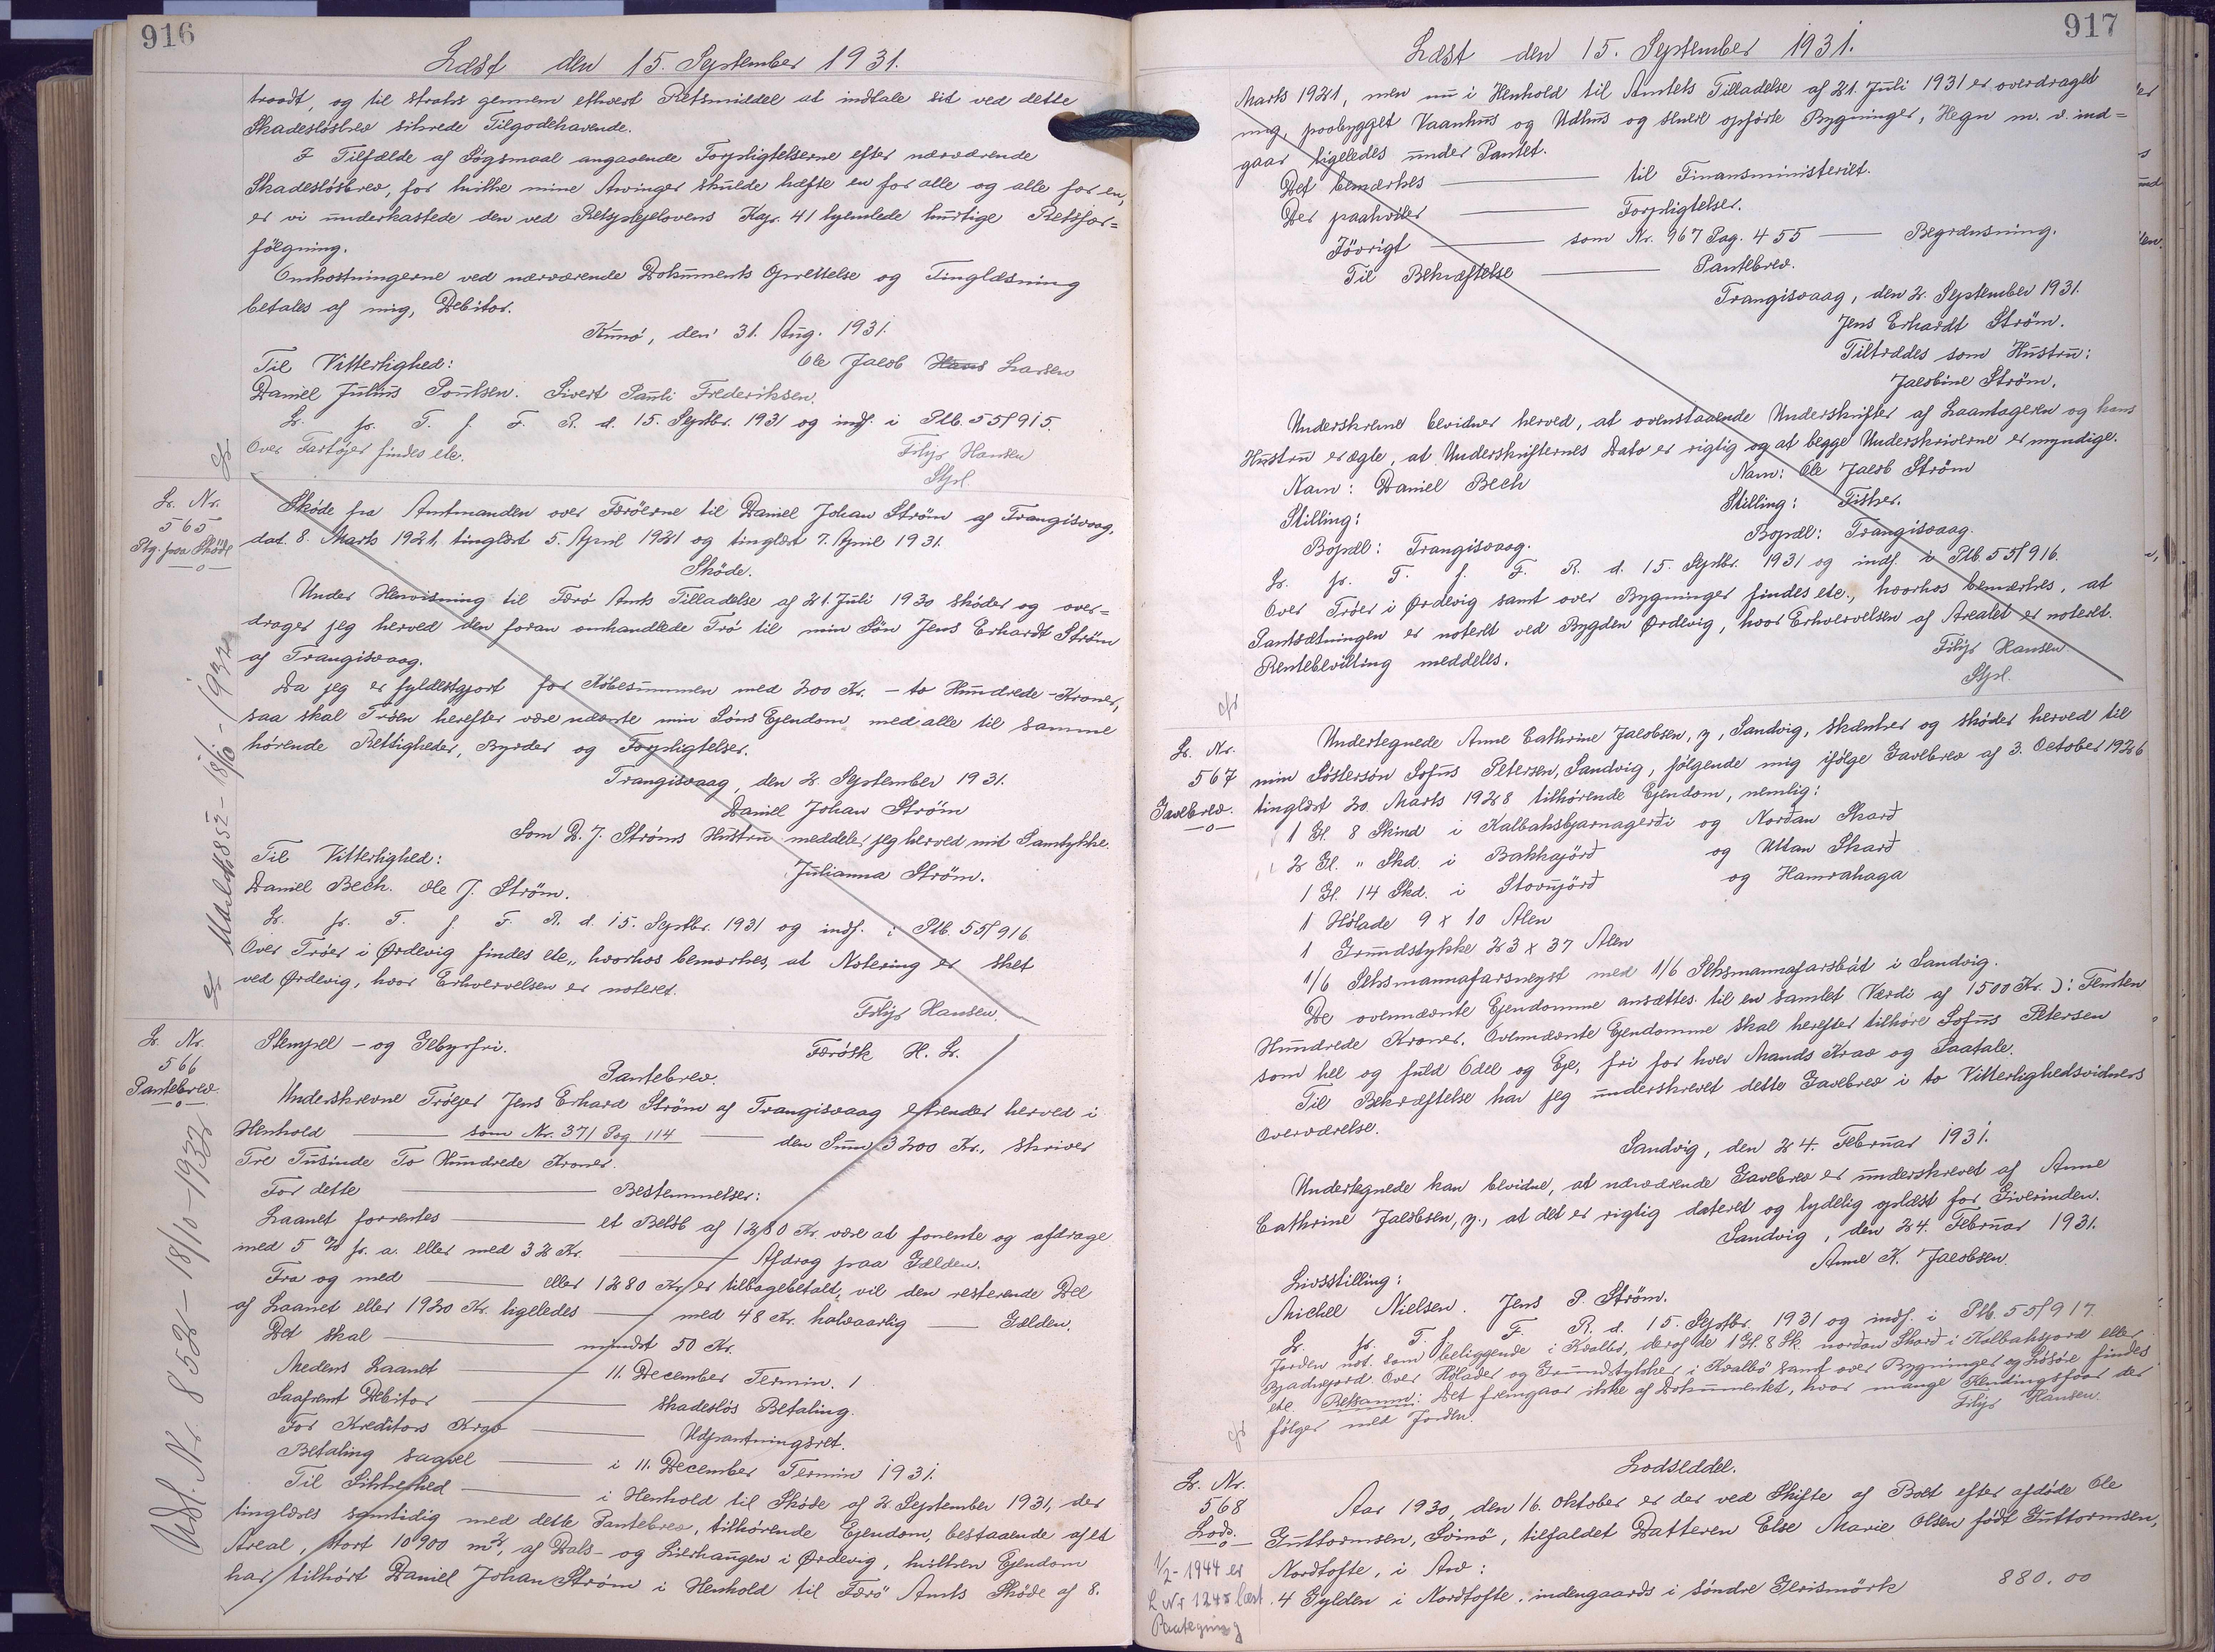 916
Læst den 15. September 1931.
traadt, og til straks gennem ethvert Retsmiddel at indtale sit ved dette
Skadesløsbrev sikrede Tilgodehavende.
I Tilfælde af Søgsmaal angaaende Forpligtelserne efter nærværende
Skadesløsbrev, for hvilke mine Arvinger skulde hæfte en for alle og alle for en,
er vi underkastede den ved Retsplejelovens Kap. 41 hjemlede hurtige Retsfor=
følgning.
Omkostningerne ved nærværende Dokuments Oprettelse og Tinglæsning
betales af mig, Debitor.
Kunø, den 31. Aug. 1931.
Til Vitterlighed:
Ole Jacob Hans Larsen
Daniel Julius Poulsen. Sivert Pauli Frederiksen.
L. p. T. f. F. R. d. 15. Septbr. 1931 og indf. i Ptb. 55/915.
Over Fartøjer findes ete.
Filip Hansen
Stpl.
L. Nr.
565
Ptg. paa Skøde
Skøde fra Amtmanden over Færøerne til Daniel Johan Strøm af Trangisvaag,
dat. 8. Marts 1921, tinglæst 5. April 1921 og tinglæst 7. April 1931.
Skøde.
Under Henvisning til Færø Amts Tilladelse af 21. Juli 1930 skøder og over=
drager jeg herved den foran omhandlede Trø til min Søn Jens Erhardt Strøm
af Trangisvaag.
Da jeg er fyldestgjort for Købesummen med 200 Kr. - to Hundrede - Kroner,
saa skal Trøen herefter være nævnte min Søns Ejendom med alle til samme
hørende Rettigheder, Byrder og Forpligtelser.
Trangisvaag, den 2. September 1931.
Daniel Johan Strøm
Som D. J. Strøms Hustru meddeler jeg herved mit Samtykke.
Til Vitterlighed:
Julianna Strøm.
Daniel Bech. Ole J. Strøm.
L. p. T. f. F. R. d. 15. Septbr. 1931 og indf. i Ptb. 55/916
Over Trøer i Ørdevig findes ete., hvorhos bemærkes, at Notering er sket
ved Ørdevig, hvor Erhvervelsen er noteret.
Filip Hansen.
L. Nr.
566
Pantebrev.
Stempel - og Gebyrfri.
Færøsk H. L.
Pantebrev.
Underskrevne Trøejer Jens Erhard Strøm af Trangisvaag erkender herved i
Henhold ——— som Nr. 371 Pag 114 ——— den Sum 3200 Kr., skriver
Tre Tusinde To Hundrede Kroner.
For dette ——— Bestemmelser:
Laanet forrentes ——— et Beløb af 1280 Kr. være at forrente og afdrage
med 5 % p. a. eller med 32 Kr. ——— Afdrag paa Gælden.
Fra og med ——— eller 1280 Kr. er tilbagebetalt, vil den resterende Del
af Laanet eller 1920 Kr. ligeledes ——— med 48 Kr. halvaarlig ——— Gælden.
Det skal ——— mindst 50 Kr.
Medens Laanet ——— 11. December Termin.
Saafremt Debitor ——— skadesløs Betaling.
For Kreditors Krav ——— Udpantningsret.
Betaling saavel ——— i 11. December Termin 1931.
Til Sikkerhed ——— i Henhold til Skøde af 2. September 1931, der
tinglæses samtidig med dette Pantebrev, tilhørende Ejendom, bestaaende af et
Areal, stort 10900 m2, af Dals- og Lierhaugen i Ørdevig, hvilken Ejendom
har tilhørt Daniel Johan Strøm i Henhold til Færø Amts Skøde af 8.
Udsl. Nr 852 - 18/10 - 1932
917
Læst den 15. September 1931.
Marts 1921, men nu i Henhold til Amtets Tilladelse af 21. Juli 1931 er overdraget
mig, paabygget Vaanhus og Udhus og senere opførte Bygninger, Hegn m. v. ind=
gaar ligeledes under Pantet.
Det bemærkes ——— til Finansministeriet.
Der paahviler ——— Forpligtelser.
Iøvrigt ——— som Nr. 967 Pag. 455 ——— Begrænsning.
Til Bekræftelse ——— Pantebrev.
Trangisvaag, den 2. September 1931.
Jens Erhardt Strøm.
Tiltrædes som Hustru:
Jacobine Strøm.
Underskrevne bevidner herved, at ovenstaaende Underskrifter af Laantageren og hans
Hustru er ægte, at Underskrifternes Dato er rigtig og at begge Underskriverne er myndige.
Navn: Daniel Bech
Navn: Ole Jacob Strøm
Stilling:
Stilling: Fisker.
Bopæl: Trangisvaag.
Bopæl: Trangisvaag.
L. p. T. f. F. R. d. 15. Septbr. 1931 og indf. i Ptb. 55/916.
Over Trøer i Ørdevig samt over Bygninger findes ete., hvorhos bemærkes, at
Pantsætningen er noteret ved Bygden Ørdevig, hvor Erhvervelsen af Arealet er noteret.
Rentebevilling meddeles.
Filip Hansen
Stpl.
L. Nr.
567
Gavebrev.
Undertegnede Anne Cathrine Jacobsen, z, Sandvig, skænker og skøder herved til
min Søstersøn Sofus Petersen, Sandvig, følgende mig ifølge Gavebrev af 3. October 1926
tinglæst 20. Marts 1928 tilhørende Ejendom, nemlig:
1 Gl. 8 Skind i Kalbaksbjarnagerði og Norðan Skarð
2 Gl. " Skd. i Bakkajørð og Uttan Skarð
1 Gl. 14 Skd. i Stovujørð og Hamrahaga
1 Hølade 9 x 10 Alen
1 Grundstykke 23 x 37 Alen
1/6 Seksmannafarsneyst med 1/6 Seksmannafarsbát i Sandvig.
De ovennævnte Ejendomme ansættes til en samlet Værdi af 1500 Kr. ɔ: Femten
Hundrede Kroner. Ovennævnte Ejendomme skal herefter tilhøre Sofus Petersen
som hel og fuld Odel og Eje, fri for hver Mands Krav og Paatale.
Til Bekræftelse har jeg underskrevet dette Gavebrev i to Vitterlighedsvidners
Overværelse.
Sandvig, den 24. Februar 1931.
Undertegnede kan bevidne, at nærværende Gavebrev er underskrevet af Anne
Cathrine Jacobsen, z., at det er rigtig dateret og tydelig oplæst for Giverinden.
Sandvig, den 24. Februar 1931.
Anne K. Jacobsen.
Livsstilling:
Michel Nielsen. Jens P. Strøm.
L. p. T. f. F. R. d. 15. Septbr. 1931 og indf. i Ptb. 55/917.
Jorden not. som beliggende i Kvalbø, deraf de 1 Gl. 8 Sk. nordan Skarð i Kalbaksjord eller
Bjadnejord. Over Hølader og Grundstykker i Kvalbø samt over Bygninger og Løsøre findes
ete. Retsanm: Det fremgaar ikke af Dokumentet, hvor mange Kendingsfaar der
følger med Jorden.
Filip Hansen.
L. Nr.
568
Lods.
1/2 - 1944 er
L Nr 1245 læst
Paategning
Lodseddel.
Aar 1930, den 16. Oktober er der ved Skifte af Boet efter afdøde Ole
Guttormsen, Svinø, tilfaldet Datteren Else Marie Olsen født Guttormsen,
Nordtofte, i Arv:
4 Gylden i Nordtofte indengaards i søndre Gerismørk 880.00